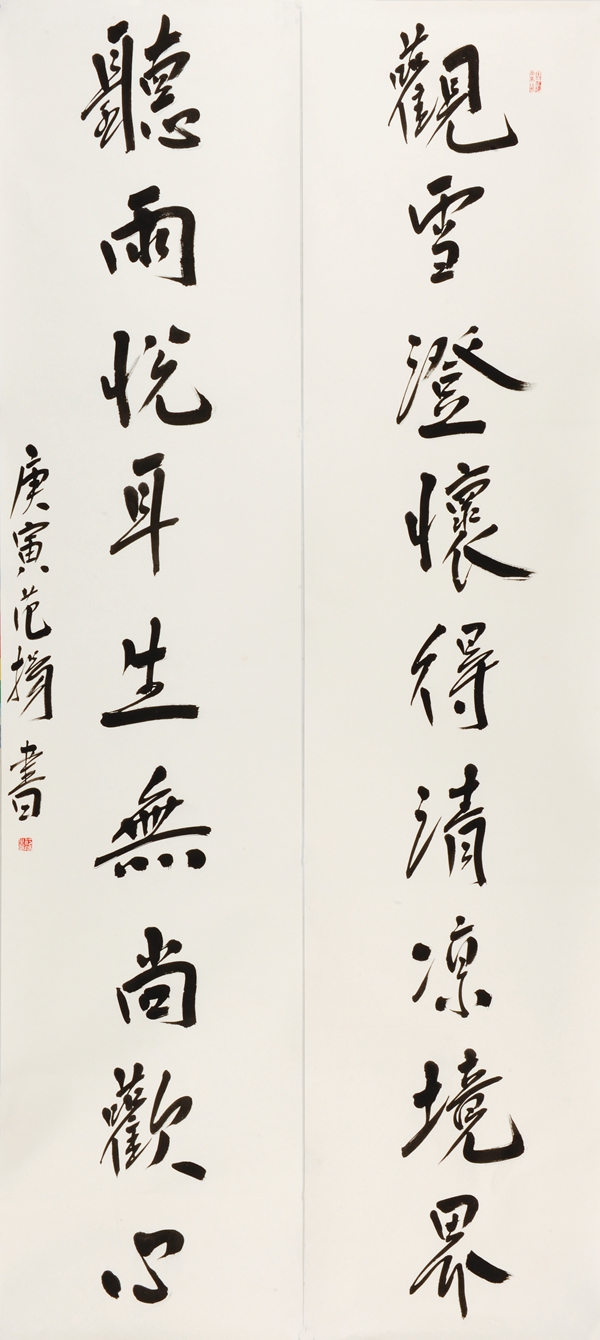 觀雪澄懷得清凉境界
聽雨悦耳生無尚歡心
庚寅范撝書